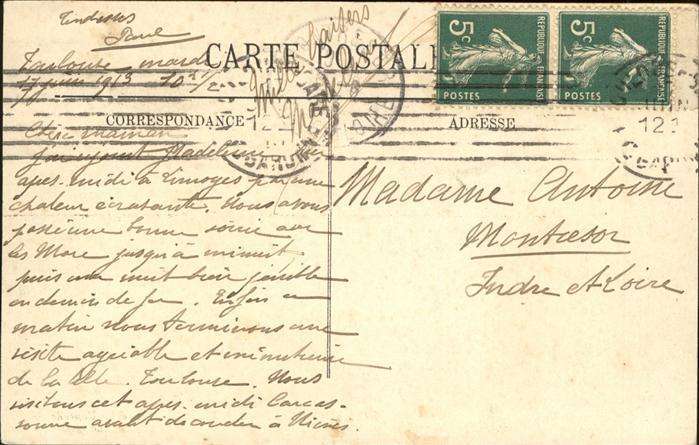 Tendresses
Paul
Toulouse mardi
17 juin 1913 10h
Mille baisers
CARTE POSTALE
CORRESPONDANCE
ADRESSE
5c
REPUBLIQUE FRANÇAISE
POSTES
5c
REPUBLIQUE FRANÇAISE
POSTES
Chère maman
J'ai rejoint Madeleine hier
après-midi à Limoges par une
chaleur écrasante. Nous avons
passé une bonne soirée avec
les More jusqu'à minuit
puis une nuit bien pénible
en chemin de fer. Enfin ce
matin nous terminons une
visite agréable et minutieuse
de la ville. Toulouse. Nous
visitons cet après-midi Carcas-
sonne avant de coucher à Nîmes.
Madame Antoine
Montrésor
Indre et Loire